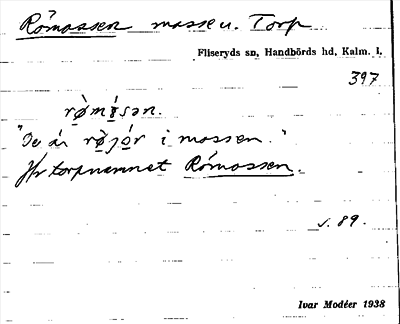 Römossen mosse u. Torp
Fliseryds sn, Handbörds hd, Kalm. l.
397
ròmósən.
"De är ròjór i mossen."
Jfr torpnamnet Römossen.
s. 89.
Ivar Modéer 1938